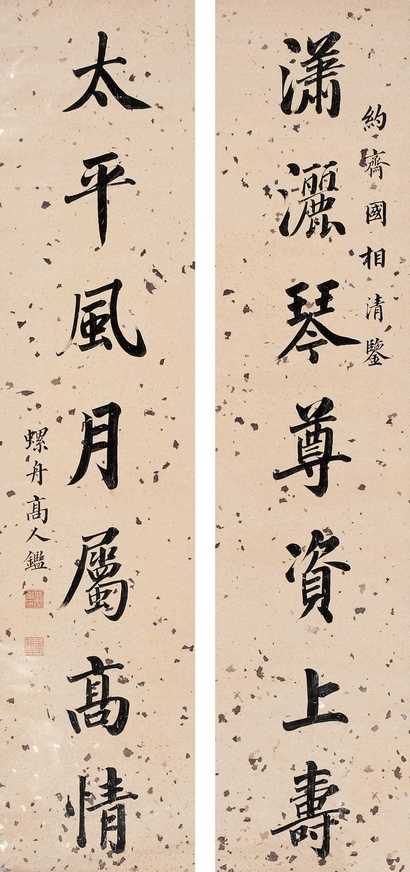 約齊國相清鑒
瀟灑琴尊資上壽
太平風月屬高情
螺舟高人鑑